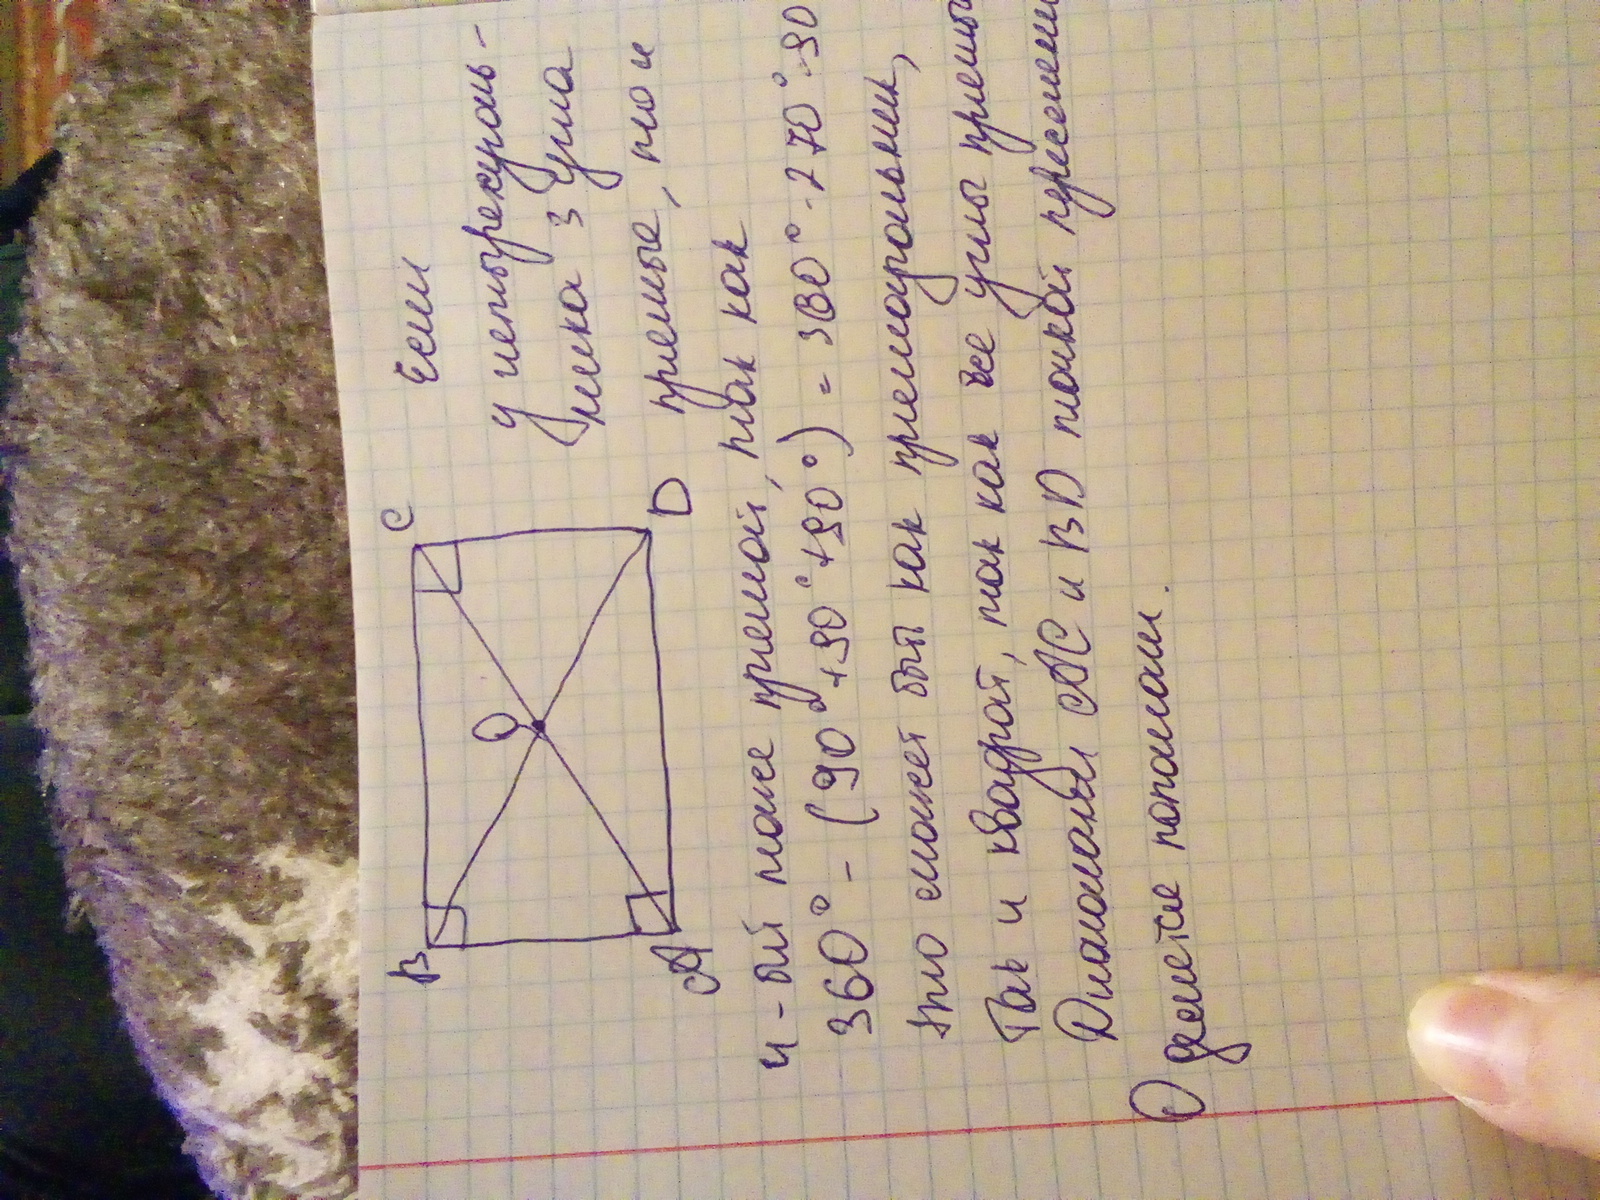 B
C
O
A
D
Если
у четырехуголь-
ника 3 угла
прямые, то и
4-ый тоже прямой, так как
360° - (90°+90°+90°) = 360°-270°=90
Это может быт как прямоугольник,
Так и квадрат, так как все углы прямы
Диагонали AC и BD точкой пресечени
O делятся пополам.